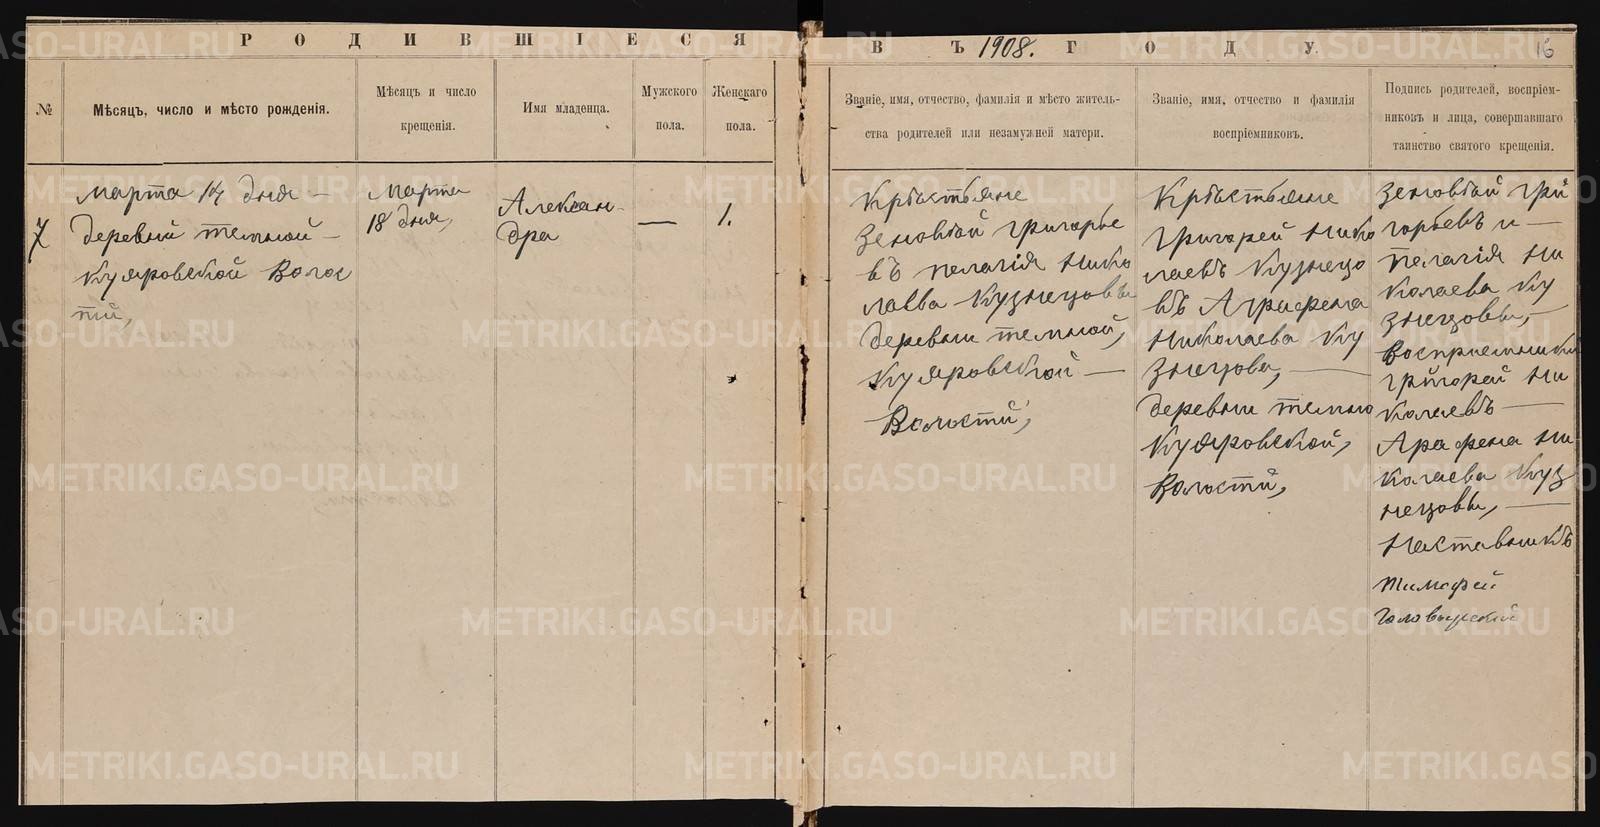 РОДИВШІЕСЯ ВЪ 1908. ГОДУ.
16
№
Мѣсяцъ, число и мѣсто рожденія.
Мѣсяцъ и число
крещенія.
Имя младенца.
Мужского
пола.
Женскаго
пола.
Званіе, имя, отчество, фамилія и мѣсто житель-
ства родителей или незамужней матери.
Званіе, имя, отчество и фамилія
воспріемниковъ.
Подпись родителей, воспріем-
никовъ и лица, совершавшаго
таинство святого крещенія.
7
Марта 14 дня —
деревни темной —
Куяровской Волос
ти,
Марта
18 дня,
Алексан-
дра
—
1.
Крѣстьяне
Зеновѣй григорье
въ пелагія Нико
лаева Кузнецовы
деревни темной,
Куяровской —
Волости,
Крѣстьяне
Григорей Нико
лаевъ Кузнецо
въ Аграфена
Николаева Ку
знецова, —
деревни темно
Куяровской,
Волости,
Зеновѣй гри
горьевъ и —
Пелагія Ни
колаева Ку
знецовы, —
Восприемники
григорей Ни
колаевъ —
Аграфена Ни
колаева Куз
нецовы, —
Наставникъ
Тимофей
METRIKI.GASO-URAL.RU